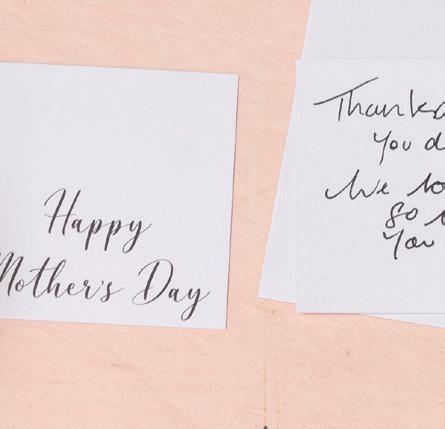 Happy
Mother's Day
Thanks
You d
We lo
so
You